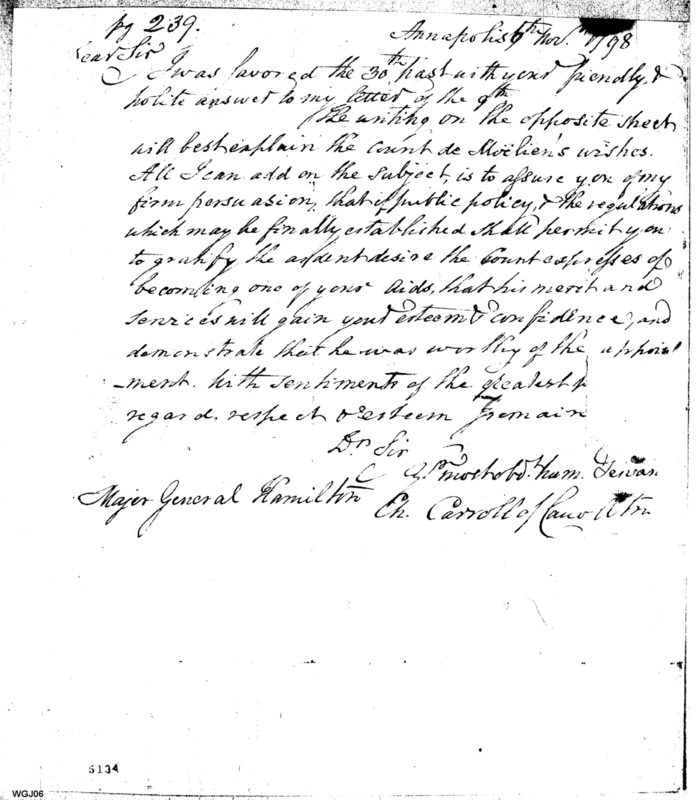 pg 239.
Annapolis 9th Novr. 1798
Dear Sir
I was favored the 30th past with your friendly &
polite answer to my letter of the 9th
The writing on the opposite sheet
will best explain the Count de Moëlien's wishes.
All I can add on the subject, is to assure you of my
firm persuasion, that if public policy, & the regulations
which may be finally established shall permit you
to gratify the ardent desire the Count expresses of
becoming one of your aids, that his merit and
services will gain your esteem & confidence, and
demonstrate that he was worthy of the appoint
-ment. With sentiments of the greatest
regard, respect & esteem I remain
Dr Sir
Yr. most obdt. hum. Servan
Major General Hamilton
Ch. Carroll of Carrollton
5134
WGJ06